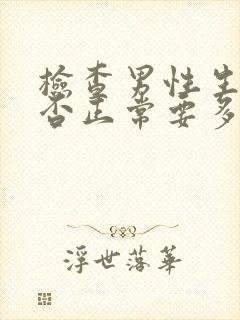 檢查男性生
否正常要多
浮世落華